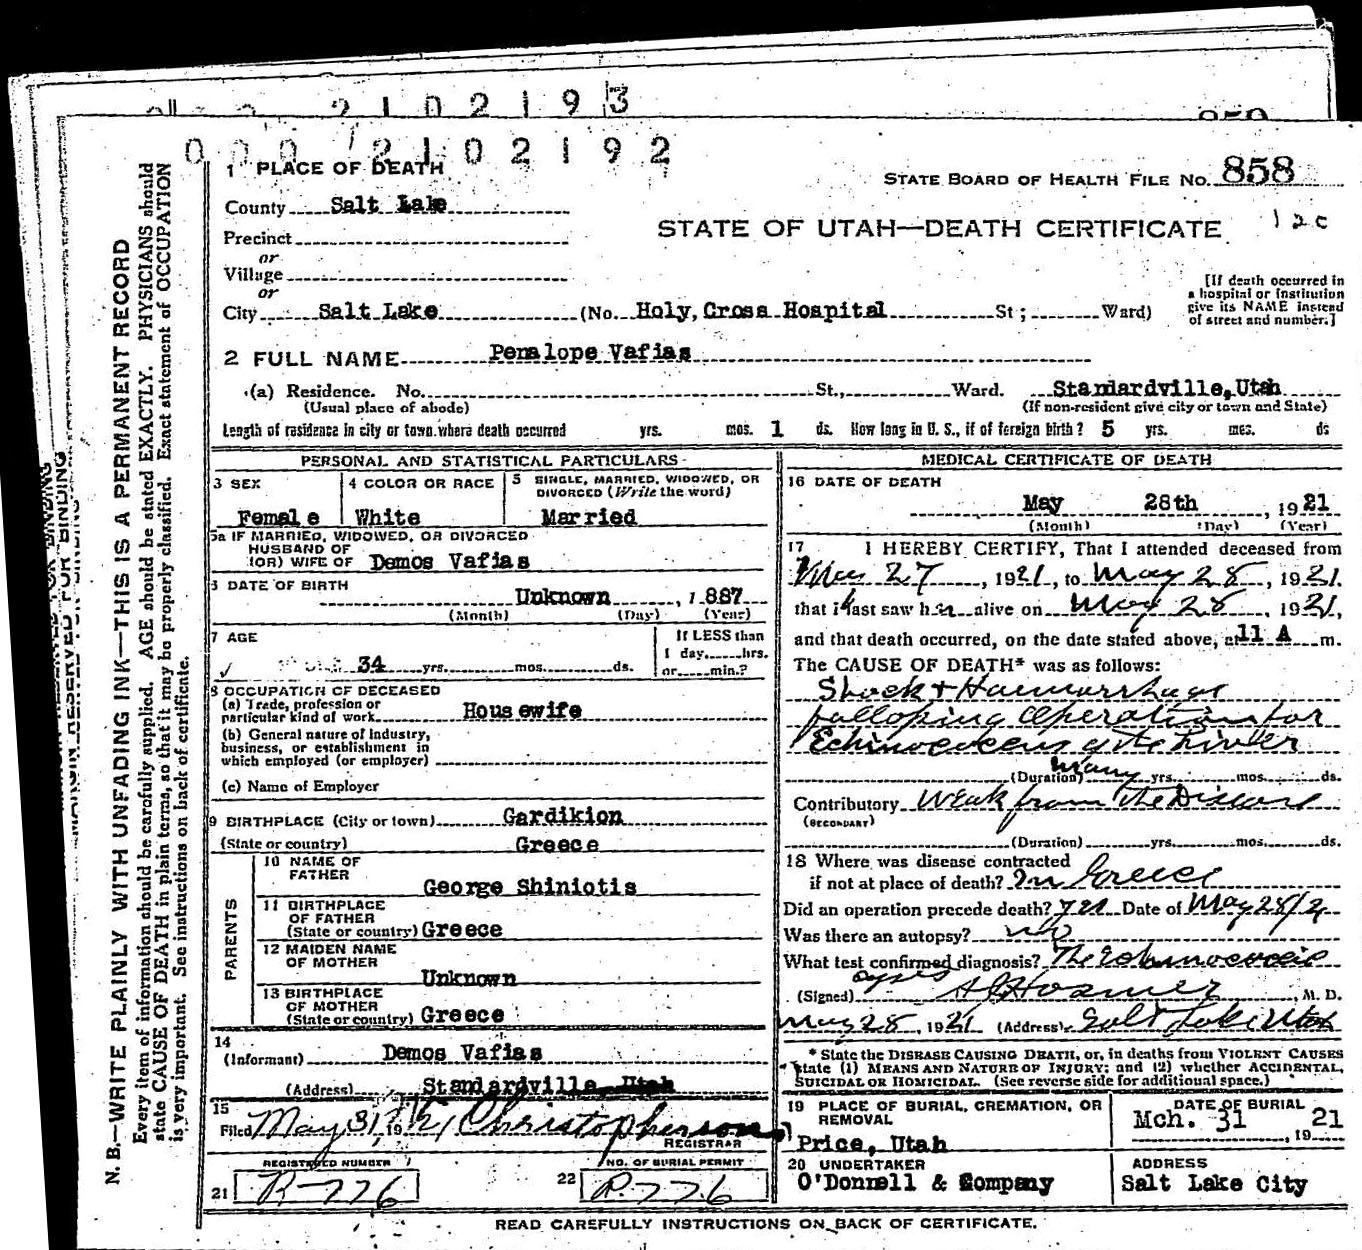 2102193
859
000 2102192
1 PLACE OF DEATH
STATE BOARD OF HEALTH FILE NO. 858
County Salt Lake
STATE OF UTAH—DEATH CERTIFICATE
120
Precinct
or
Village
or
City Salt Lake (No. Holy, Cross Hospital St; Ward)
[If death occurred in
a hospital or institution
give its NAME instead
of street and number.]
2 FULL NAME Penalope Vafias
(a) Residence. No. St., Ward. Standardville, Utah
(Usual place of abode) (If non-resident give city or town and State)
Length of residence in city or town where death occurred yrs. mos. 1 ds. How long in U. S., if of foreign birth? 5 yrs. mos. ds
PERSONAL AND STATISTICAL PARTICULARS
3 SEX Female
4 COLOR OR RACE White
5 SINGLE, MARRIED, WIDOWED, OR
DIVORCED (Write the word)
Married
5a IF MARRIED, WIDOWED, OR DIVORCED
HUSBAND OF
(OR) WIFE OF Demos Vafias
6 DATE OF BIRTH
Unknown, 1887
(Month) (Day) (Year)
7 AGE
34 yrs. mos. ds.
If LESS than
1 day, hrs.
or min.?
8 OCCUPATION OF DECEASED
(a) Trade, profession or
particular kind of work Housewife
(b) General nature of Industry,
business, or establishment in
which employed (or employer)
(c) Name of Employer
9 BIRTHPLACE (City or town) Gardikion
(State or country) Greece
PARENTS
10 NAME OF
FATHER George Shiniotis
11 BIRTHPLACE
OF FATHER
(State or country) Greece
12 MAIDEN NAME
OF MOTHER Unknown
13 BIRTHPLACE
OF MOTHER
(State or country) Greece
14
(Informant) Demos Vafias
(Address) Standardville, Utah
15
Filed May 31, 1921 Christopherson
REGISTRAR
REGISTERED NUMBER
21 R-776
NO. OF BURIAL PERMIT
22 R-776
MEDICAL CERTIFICATE OF DEATH
16 DATE OF DEATH
May 28th, 1921
(Month) (Day) (Year)
17 I HEREBY CERTIFY, That I attended deceased from
May 27, 1921, to May 28, 1921
that I last saw her alive on May 28, 1921,
and that death occurred, on the date stated above, at 11 A m.
The CAUSE OF DEATH* was as follows:
Shock & Haemorrhage
following operation for
Echinococcus of the Liver
(Duration) many yrs. mos. ds.
Contributory Weak from the Disease
(SECONDARY)
(Duration) yrs. mos. ds.
18 Where was disease contracted
if not at place of death? In Greece
Did an operation precede death? yes Date of May 28/21
Was there an autopsy? no
What test confirmed diagnosis? The Echinococcic
cysts
(Signed) , M. D.
May 28, 1921 (Address) Salt Lake Utah
* State the DISEASE CAUSING DEATH, or, in deaths from VIOLENT CAUSES
state (1) MEANS AND NATURE OF INJURY; and (2) whether ACCIDENTAL,
SUICIDAL OR HOMICIDAL. (See reverse side for additional space.)
19 PLACE OF BURIAL, CREMATION, OR
REMOVAL
Price, Utah
DATE OF BURIAL
Mch. 31, 1921
20 UNDERTAKER
O'Donnell & Company
ADDRESS
Salt Lake City
READ CAREFULLY INSTRUCTIONS ON BACK OF CERTIFICATE.
MARGIN RESERVED FOR BINDING
N. B.—WRITE PLAINLY WITH UNFADING INK—THIS IS A PERMANENT RECORD
Every item of information should be carefully supplied. AGE should be stated EXACTLY. PHYSICIANS should
state CAUSE OF DEATH in plain terms, so that it may be properly classified. Exact statement of OCCUPATION
is very important. See instructions on back of certificate.